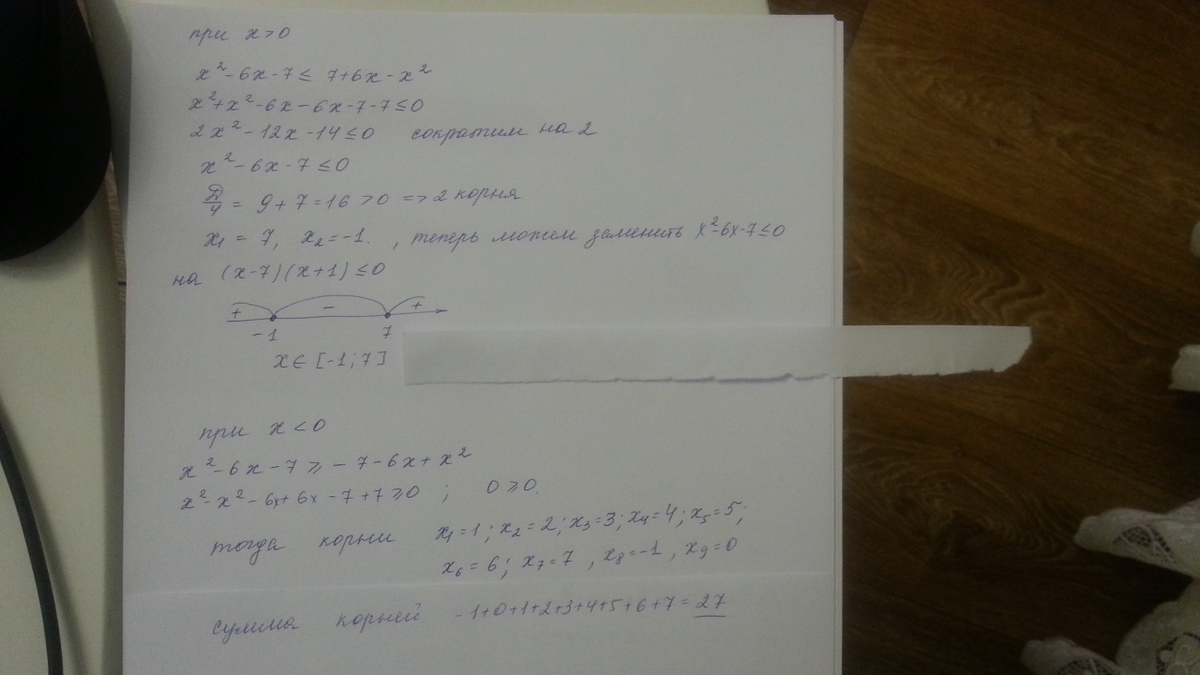 при x>0
x²-6x-7≤ 7+6x-x²
x²+x²-6x-6x-7-7≤0
2x²-12x-14≤0 сократим на 2
x²-6x-7≤0
D/4 = 9+7=16>0 => 2 корня
x₁ = 7, x₂=-1. , теперь можем заменить x²-6x-7≤0
на (x-7)(x+1)≤0
+ - +
-1 7
x∈ [-1;7]
при x<0
x²-6x-7 ≥ -7-6x+x²
x²-x²-6x+6x-7+7≥0 ; 0≥0.
тогда корни x₁=1; x₂=2; x₃=3; x₄=4; x₅=5;
x₆=6; x₇=7 , x₈=-1 , x₉=0
сумма корней -1+0+1+2+3+4+5+6+7=27